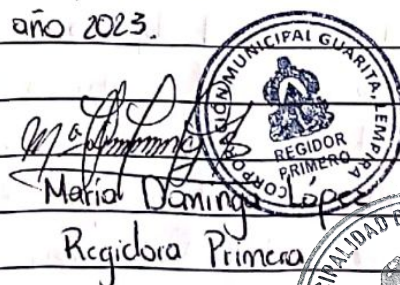 año 2023.
CORPORACIÓN MUNICIPAL GUARITA, LEMPIRA
REGIDOR
PRIMERO
Mª
María Dominga López
Regidora Primera